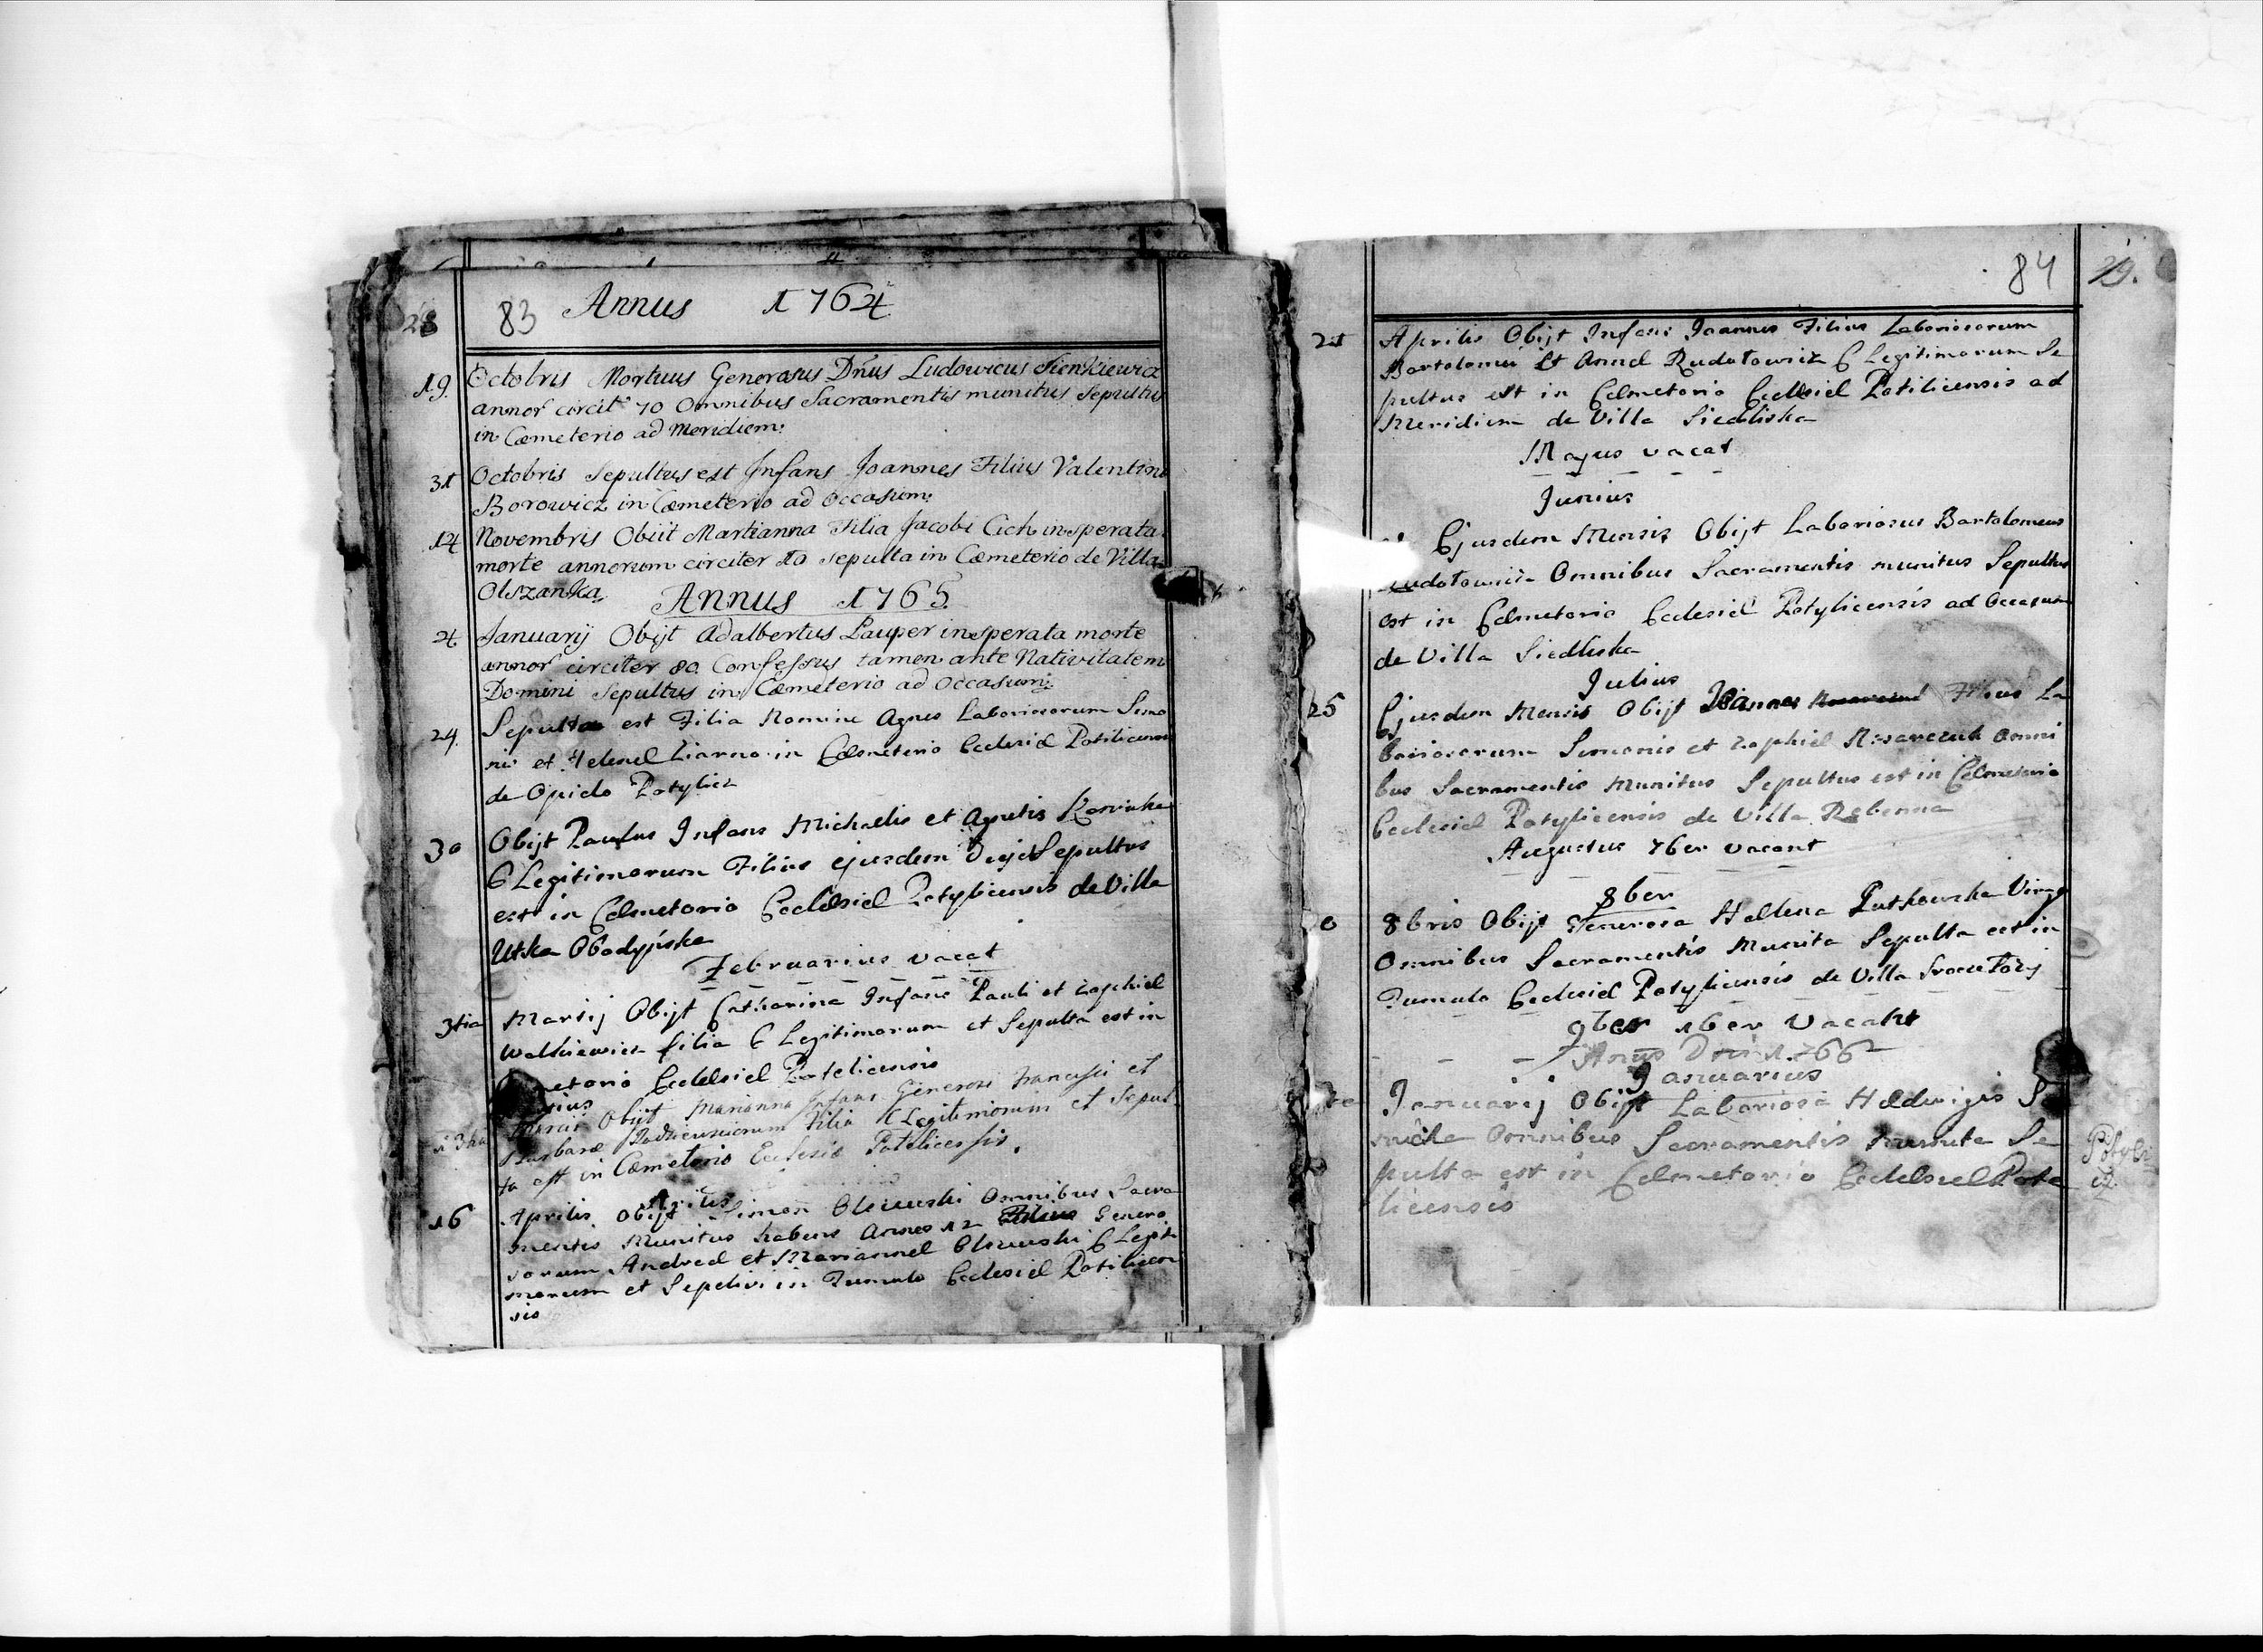 28 83 Annus 1764
19. Octobris Mortuus Generosus Dnus Ludowicus Sienkiewicz
annor circit 70 Omnibus Sacramentis munitus Sepultus
in Cæmeterio ad Meridiem.
31 Octobris Sepultus est Infans Joannes Filius Valentini
Borowicz in Cæmeterio ad Occasum.
14 Novembris Obiit Martianna Filia Jacobi Cich insperata
morte annorum circiter 10 sepulta in Cæmeterio de Villa
Olszanka.
Annus 1765
4 Januarij Obijt Adalbertus Pauper insperata morte
annor circiter 80. Confessus tamen ante Nativitatem
Domini Sepultus in Cæmeterio ad Occasum.
24. Sepulta est Filia Nomine Agnes Laboriosorum Simo
nis et Helenæ in Cæmeterio Ecclesiæ Potilicensis
de Opido Potylicz
30 Obijt Paulus Infans Michaelis et Agnetis
C Legitimorum Filius ejusdem Sepultus
est in Cæmeterio Ecclesiæ Potylicensis de Villa
Utka Obodyńska
Februarius vacat
3tia Martij Obijt Catharina Infans Pauli et Zophiæ
Walkiewicz filia C Legitimorum et Sepulta est in
Ecclesiæ Potelicensis
Marcii Obijt Marianna Infans Generosi Francisci et
Barbaræ Filia CLegitimorum et Sepul
ta est in Cæmeterio Eclesiæ Potelicessis.
Aprilis
16 Aprilis Obijt Simon Olszewski Omnibus Sacra
mentis Munitus habens Annos 12 Filius Genero
sorum Andreæ et Mariannæ Olszewski C Legiti
morum et Sepelivi in Tumulo Ecclesiæ Potilicen
sis
84 29.
21 Aprilis Obijt Infans Joannes Filius Laboriosorum
Bartolomei Et Annæ Rudotowicz C Legitimorum Se
pultus est in Cæmeterio Ecclesiæ Potilicensis ad
Meridiem de Villa Siedliska
Majus vacat
Junius
Ejusdem Mensis Obijt Laboriosus Bartolomeus
Rudotowicz Omnibus Sacramentis munitus Sepultus
est in Cæmeterio Ecclesiæ Potylicensis ad Occasum
de Villa Siedliska
Julius
25 Ejusdem Mensis Obijt Joannes Filius La
boriosorum Simonis et Zophiæ Omni
bus Sacramentis Munitus Sepultus est in Cæmeterio
Ecclesiæ Potylicensis de Villa Rebenna
Augustus 7ber vacant
8ber
0 8bris Obijt Generosa Hellena Putkowska Virgo
Omnibus Sacramentis Munita Sepulta est in
Tumulo Ecclesiæ Potylicensis de Villa
9ber 1ber Vacant
Annus Dni 1766
Januarius
Januarij Obijt Laboriosa Hedwigis
Omnibus Sacramentis munita Se
pulta est in Cæmeterio Ecclesiæ Pote
licensis
Potyli
cz.